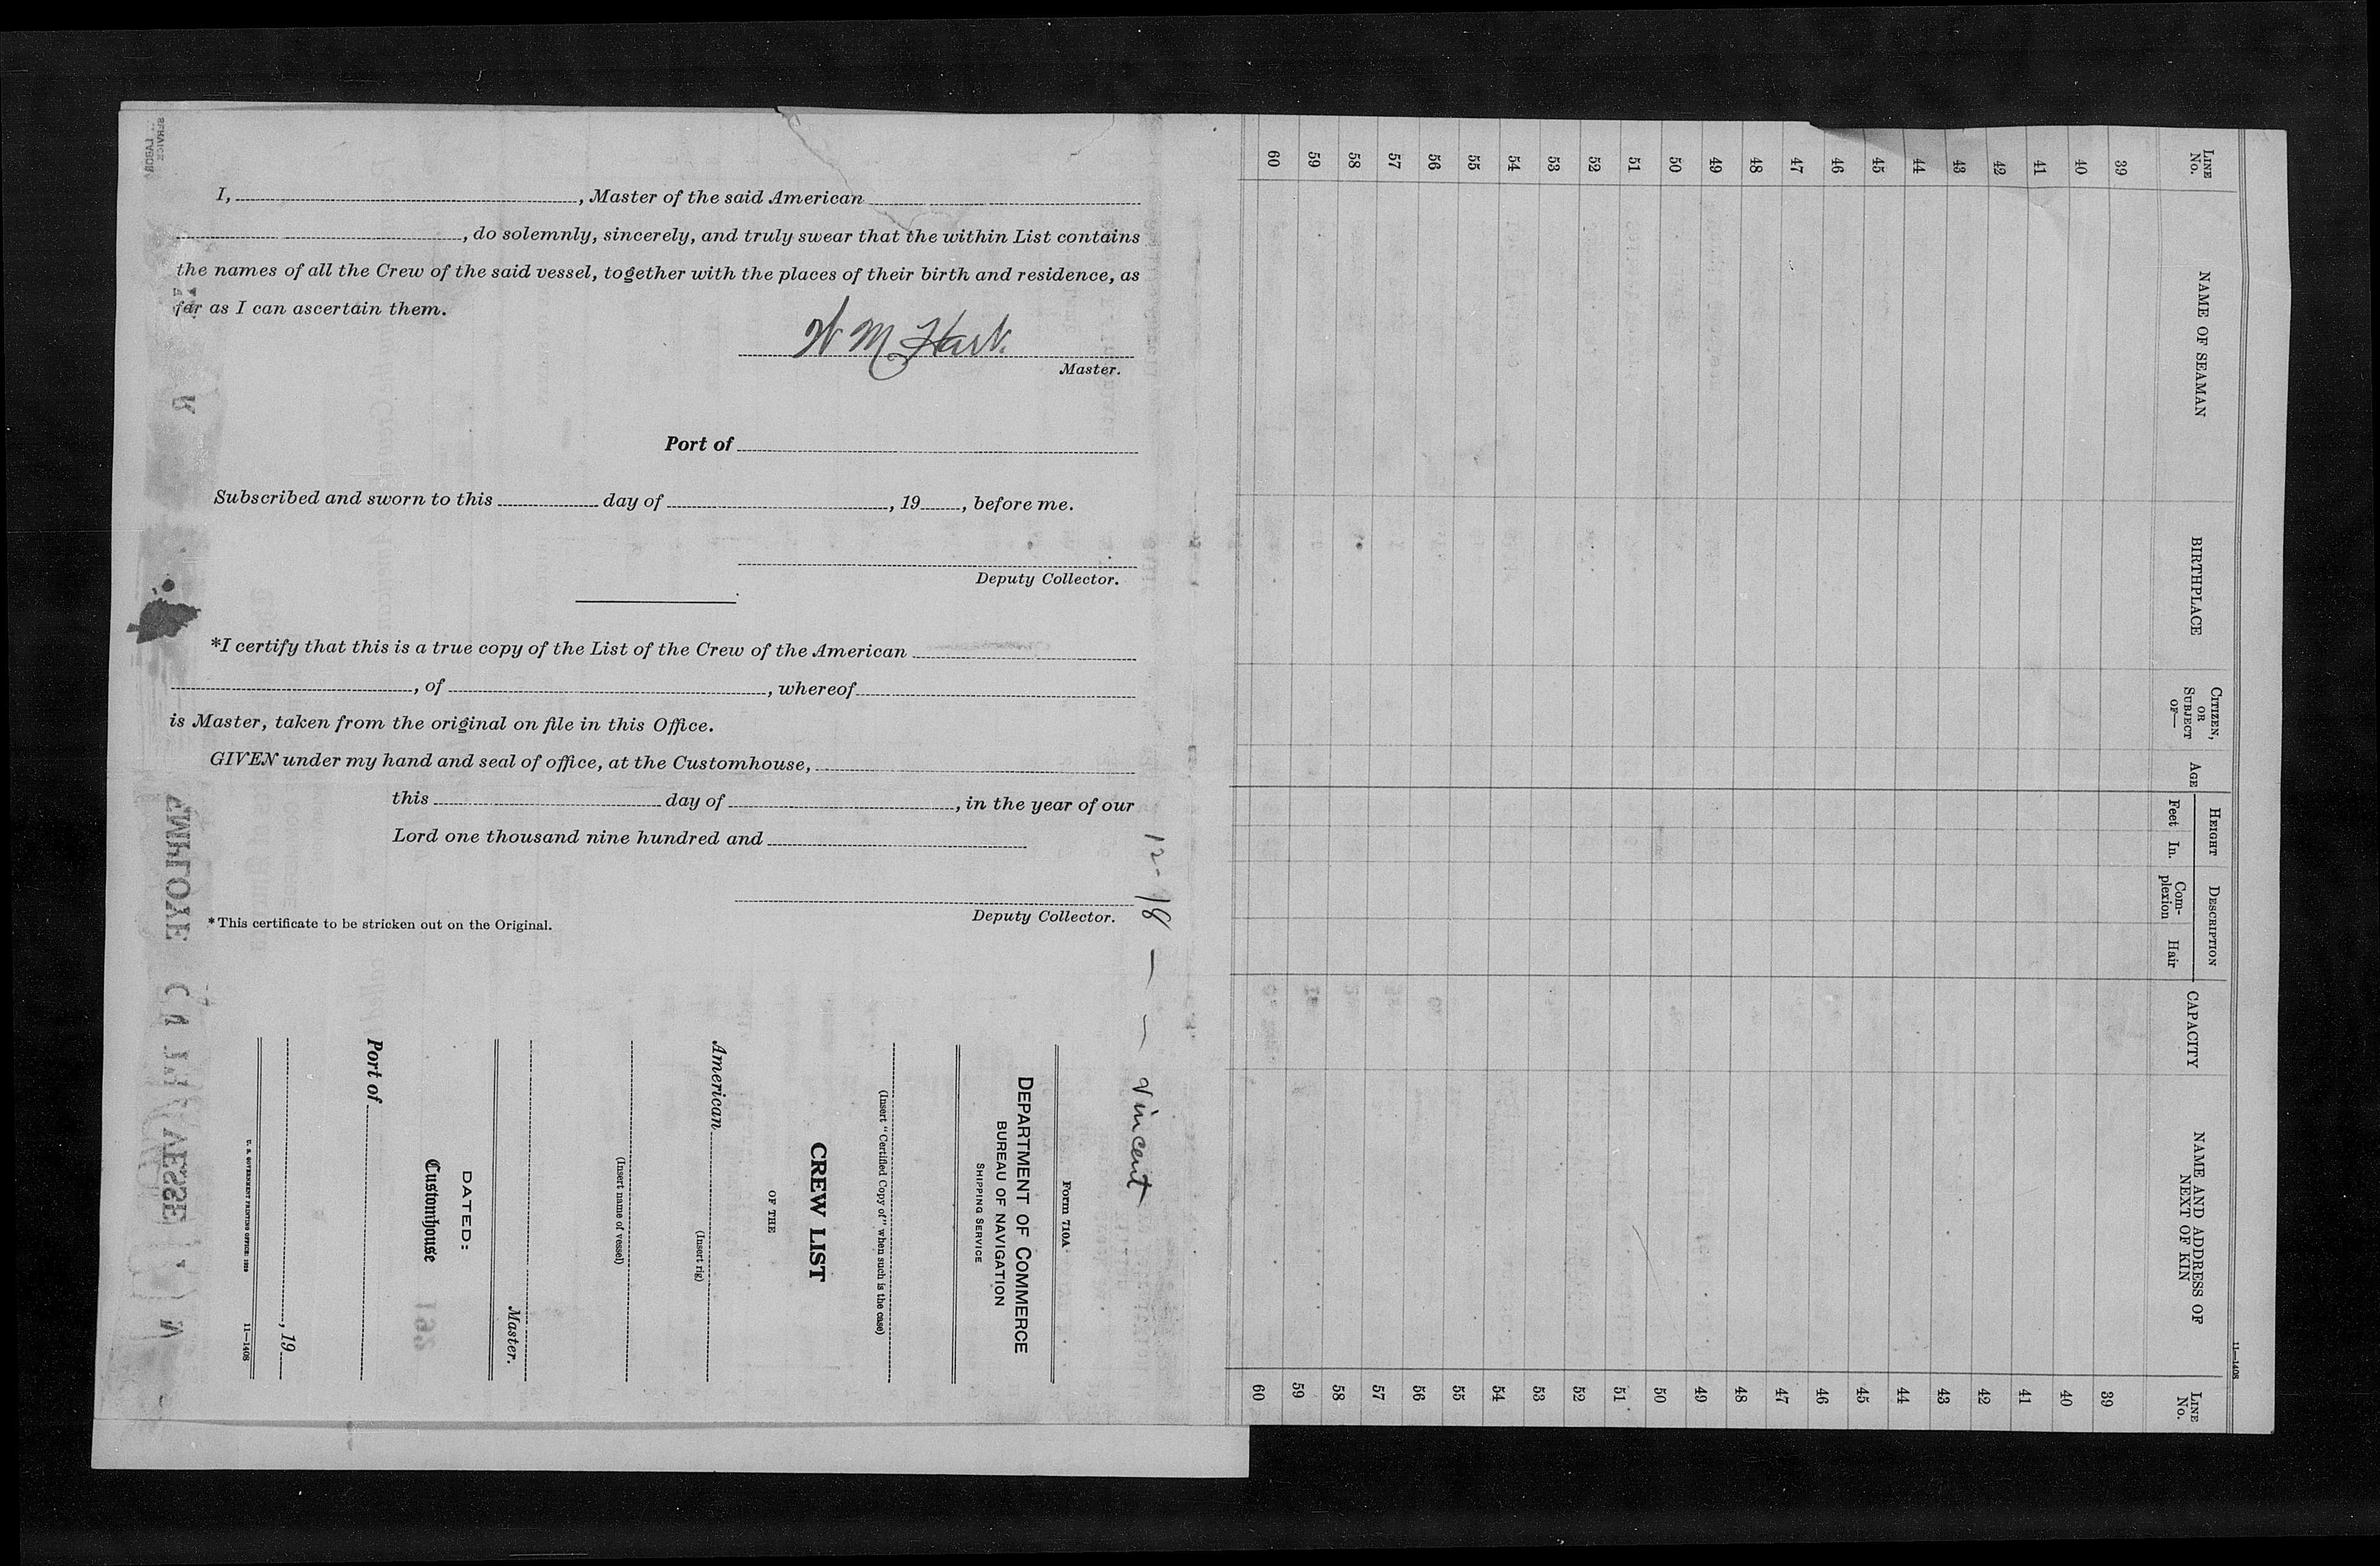 I, , Master of the said American
, do solemnly, sincerely, and truly swear that the within List contains
the names of all the Crew of the said vessel, together with the places of their birth and residence, as
far as I can ascertain them.
W M Hart.
Master.
Port of
Subscribed and sworn to this day of , 19 , before me.
Deputy Collector.
*I certify that this is a true copy of the List of the Crew of the American
, of , whereof
is Master, taken from the original on file in this Office.
GIVEN under my hand and seal of office, at the Customhouse,
this day of , in the year of our
Lord one thousand nine hundred and
Deputy Collector.
*This certificate to be stricken out on the Original.
12-18 — — Vincent
Form 710A
DEPARTMENT OF COMMERCE
BUREAU OF NAVIGATION
SHIPPING SERVICE
(Insert "Certified Copy of" when such is the case)
CREW LIST
OF THE
American
(Insert rig)
(Insert name of vessel)
Master.
DATED:
Customhouse
Port of
, 19
U. S. GOVERNMENT PRINTING OFFICE: 11—1408
11—1408
LINE No. NAME OF SEAMAN BIRTHPLACE CITIZEN, OR SUBJECT OF— AGE HEIGHT Feet In. DESCRIPTION Complexion Hair CAPACITY NAME AND ADDRESS OF NEXT OF KIN LINE No.
39 39
40 40
41 41
42 42
43 43
44 44
45 45
46 46
47 47
48 48
49 49
50 50
51 51
52 52
53 53
54 54
55 55
56 56
57 57
58 58
59 59
60 60